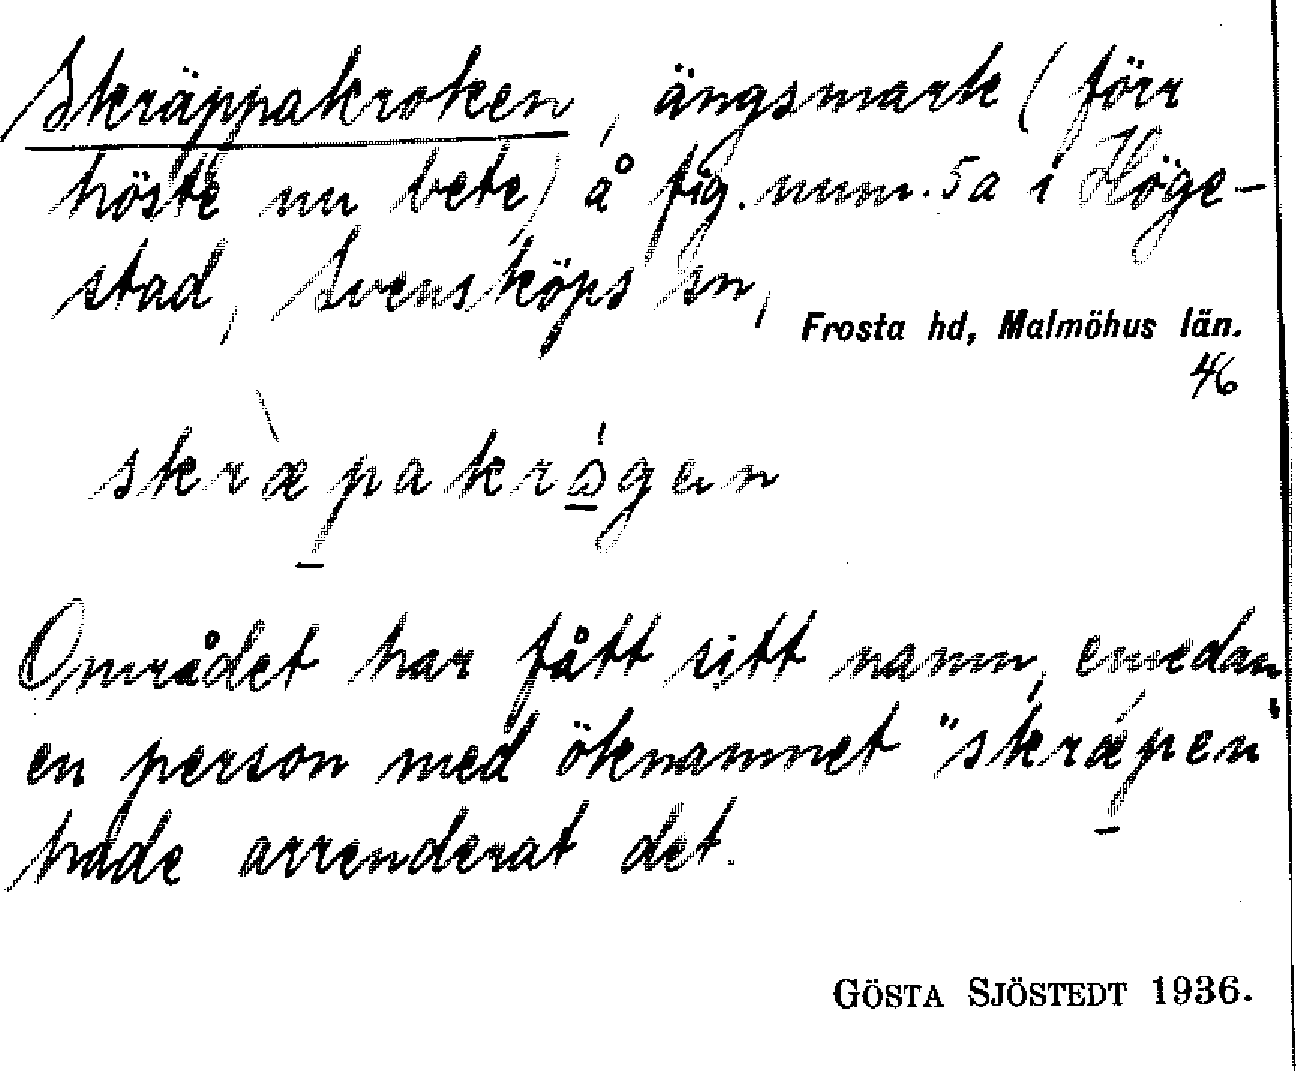 Skräppakroken, ängsmark (förr
höste nu bete) å fig. num. 5a i Höge-
stad, Svensköps sn,
Frosta hd, Malmöhus län.
46
skræ̀pakrǻgen
Området har fått sitt namn, emedan
en person med öknamnet "skrǽpen"
hade arrenderat det.
GÖSTA SJÖSTEDT 1936.